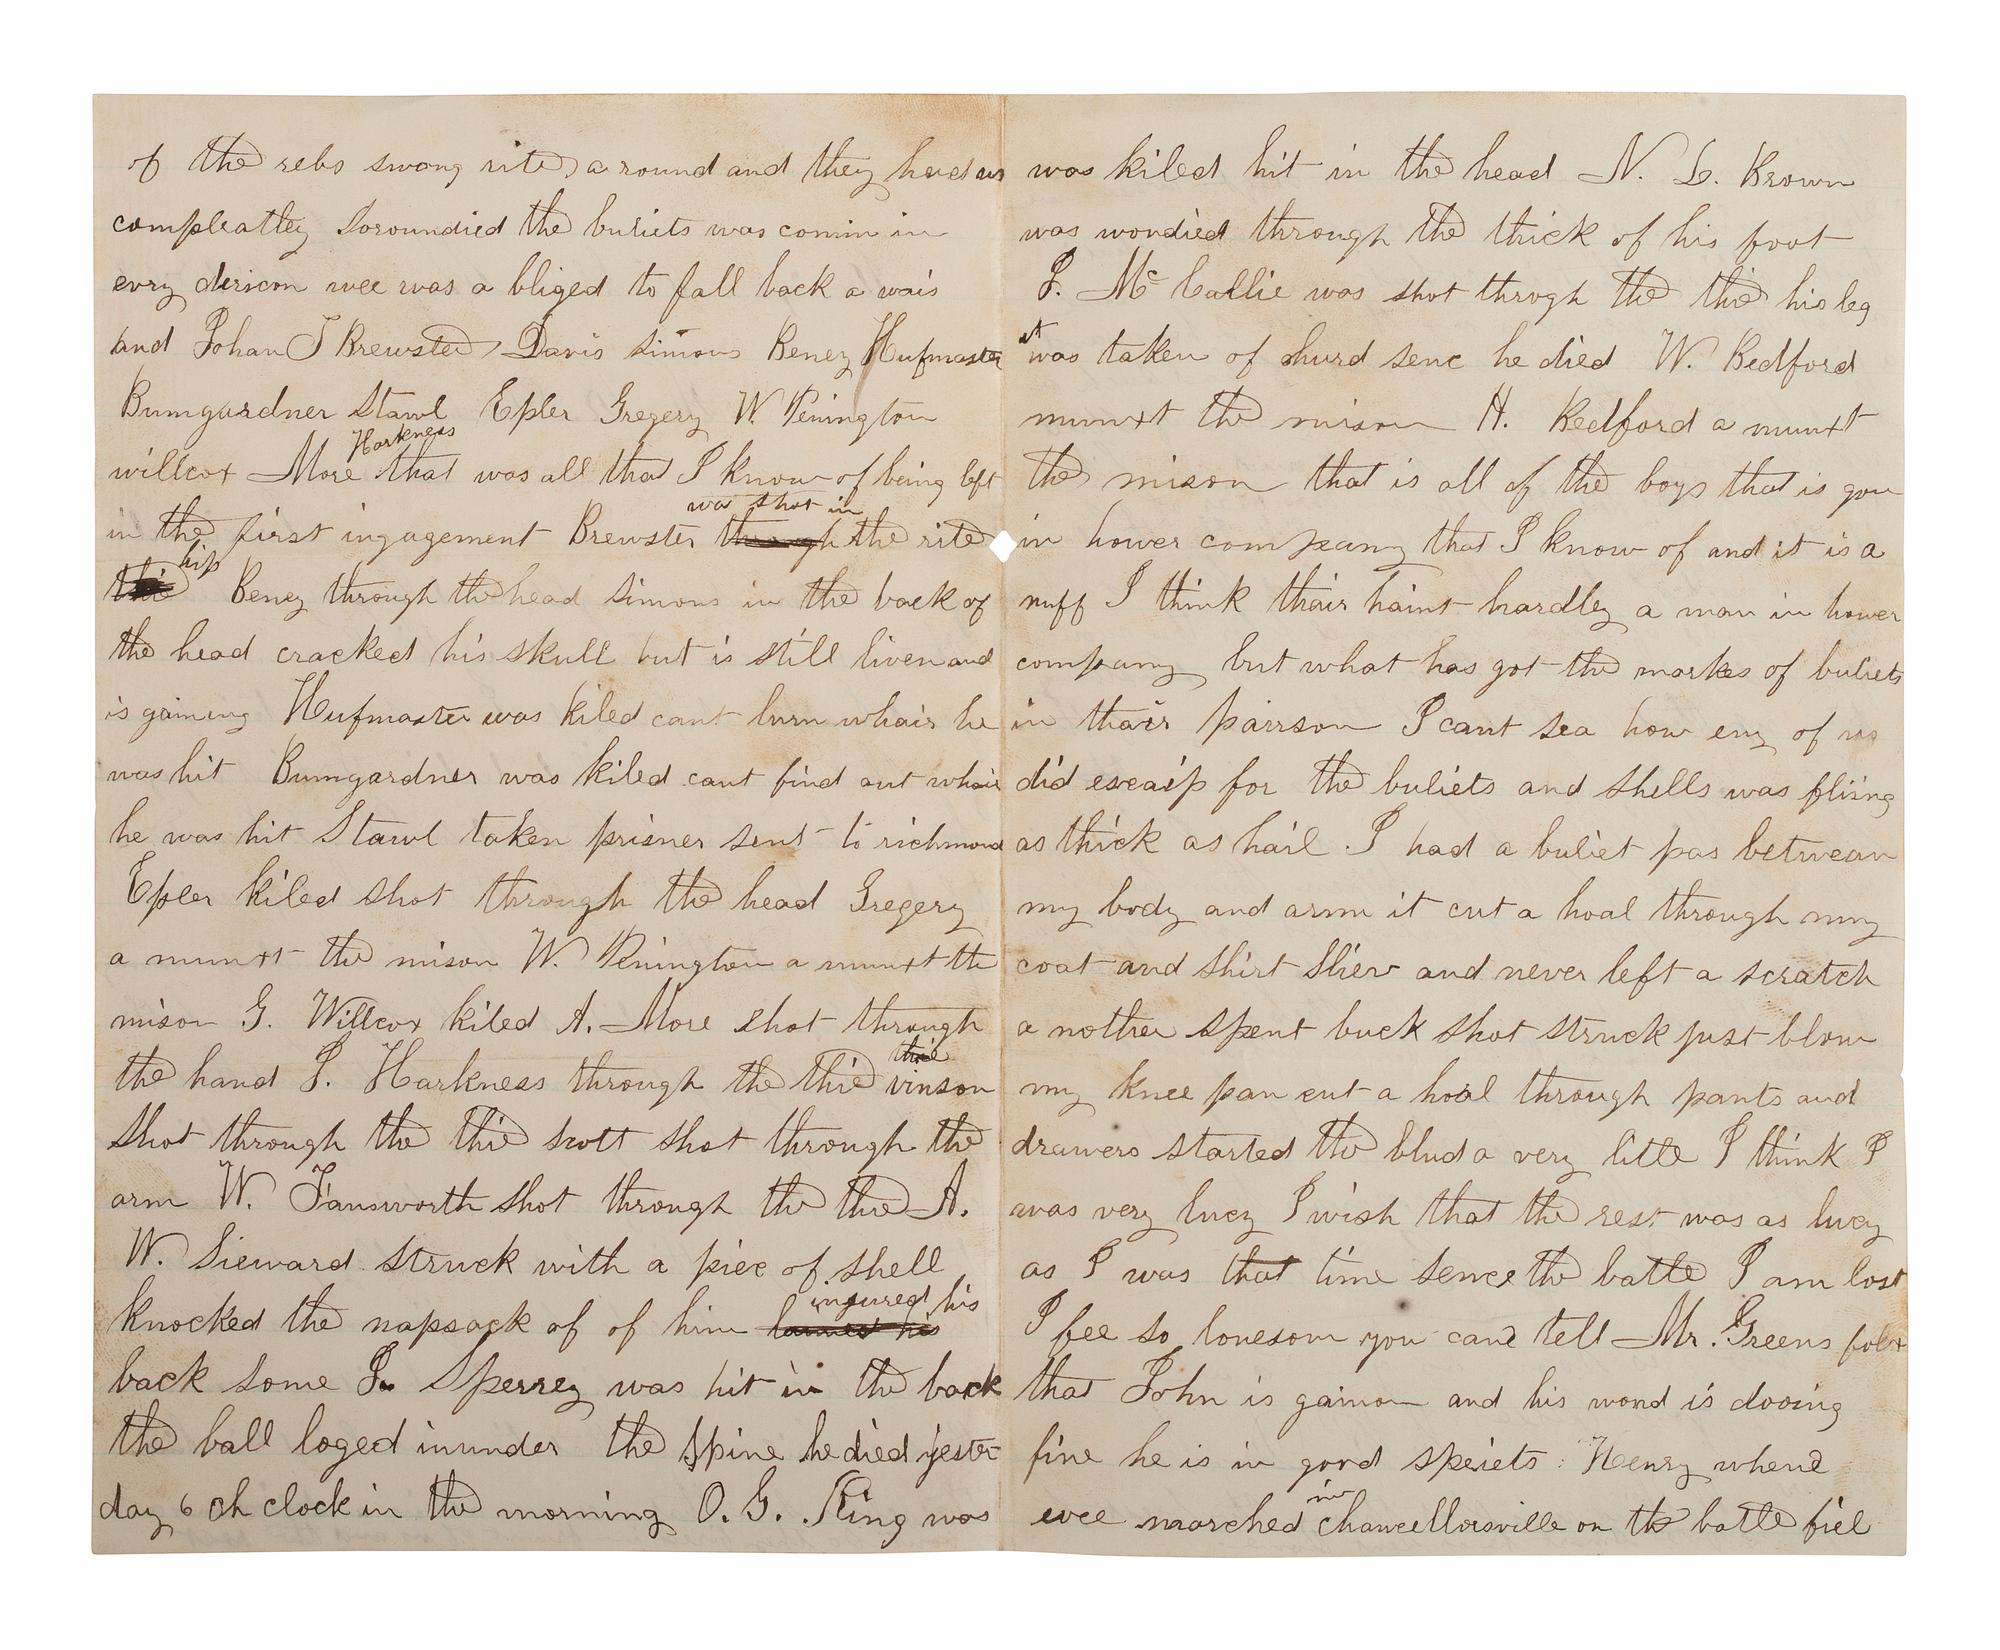 of the rebs swong rite a round and they had us
compleatley soroundied the buliets was comin in
evry diricon wee was a bliged to fall back a wais
and Johan T Brewster, Davis simons Beney Hufmaster
Bumgardner Stawl Epler Gregery W. Penington
Harkness
willcox More that was all that I know of being left
was shot in
in the first ingagement Brewster through the rite
hip
thie Beney through the head simons in the back of
the head cracked his skull but is still liven and
is gaineng Hufmaster was kiled cant lurn whair he
was hit Bumgardner was kiled cant find out whair
he was hit Stawl taken prisner sent to richmond
Epler kiled shot through the head Gregery
a munxt the mison W. Penington a munxt the
mison G. Willcox kiled A. More shot through
the hand J. Harkness through the thie vinson
shot through the thie scott shot through the
arm W. Fansworth shot through the thie A.
W. Sieward struck with a piec of shell
ingured his
knocked the napsack of of him
back some J. Sperrey was hit in the back
the ball loged inunder the spine he died yester
day 6 oh clock in the morning O. G. King was
was kiled hit in the head N. L. Brown
was wondied through the thick of his foot
J. Mc Callie was shot throgh the thie his leg
it
was taken of hurd senc he died W. Bedford
munxt the mison H. Bedford a munxt
the mison that is all of the boys that is gon
in hower company that I know of and it is a
nuff I think thair haint hardley a man in hower
company but what has got the markes of buliets
in thair pairson I cant sea how eny of us
did escaip for the buliets and shells was fliing
as thick as hail. I had a buliet pas betwean
my body and arm it cut a hoal through my
coat and shirt sliev and never left a scratch
a nother spent buck shot struck just blow
my knee pan cut a hoal through pants and
drawers started the blud a very litle I think I
was very lucy I wish that the rest was as lucy
as I was that time sence the batle I am lost
I fee so lonesom you cand tell Mr. Greens folx
that John is gainon and his wond is dooing
fine he is in good speiets : Henry whend
in
wee marched chancellorsville on the batle fiel